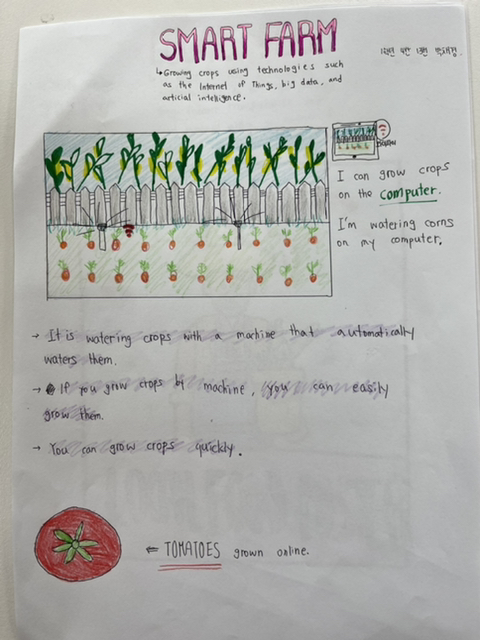 SMART FARM
↳ Growing crops using technologies such
as the Internet of Things, big data, and
articial intelligence.
I can grow crops
on the computer.
I'm watering corns
on my computer.
→ It is watering crops with a machine that automatically
waters them.
→ If you grow crops by machine, you can easily
grow them.
→ You can grow crops quickly.
← TOMATOES grown online.